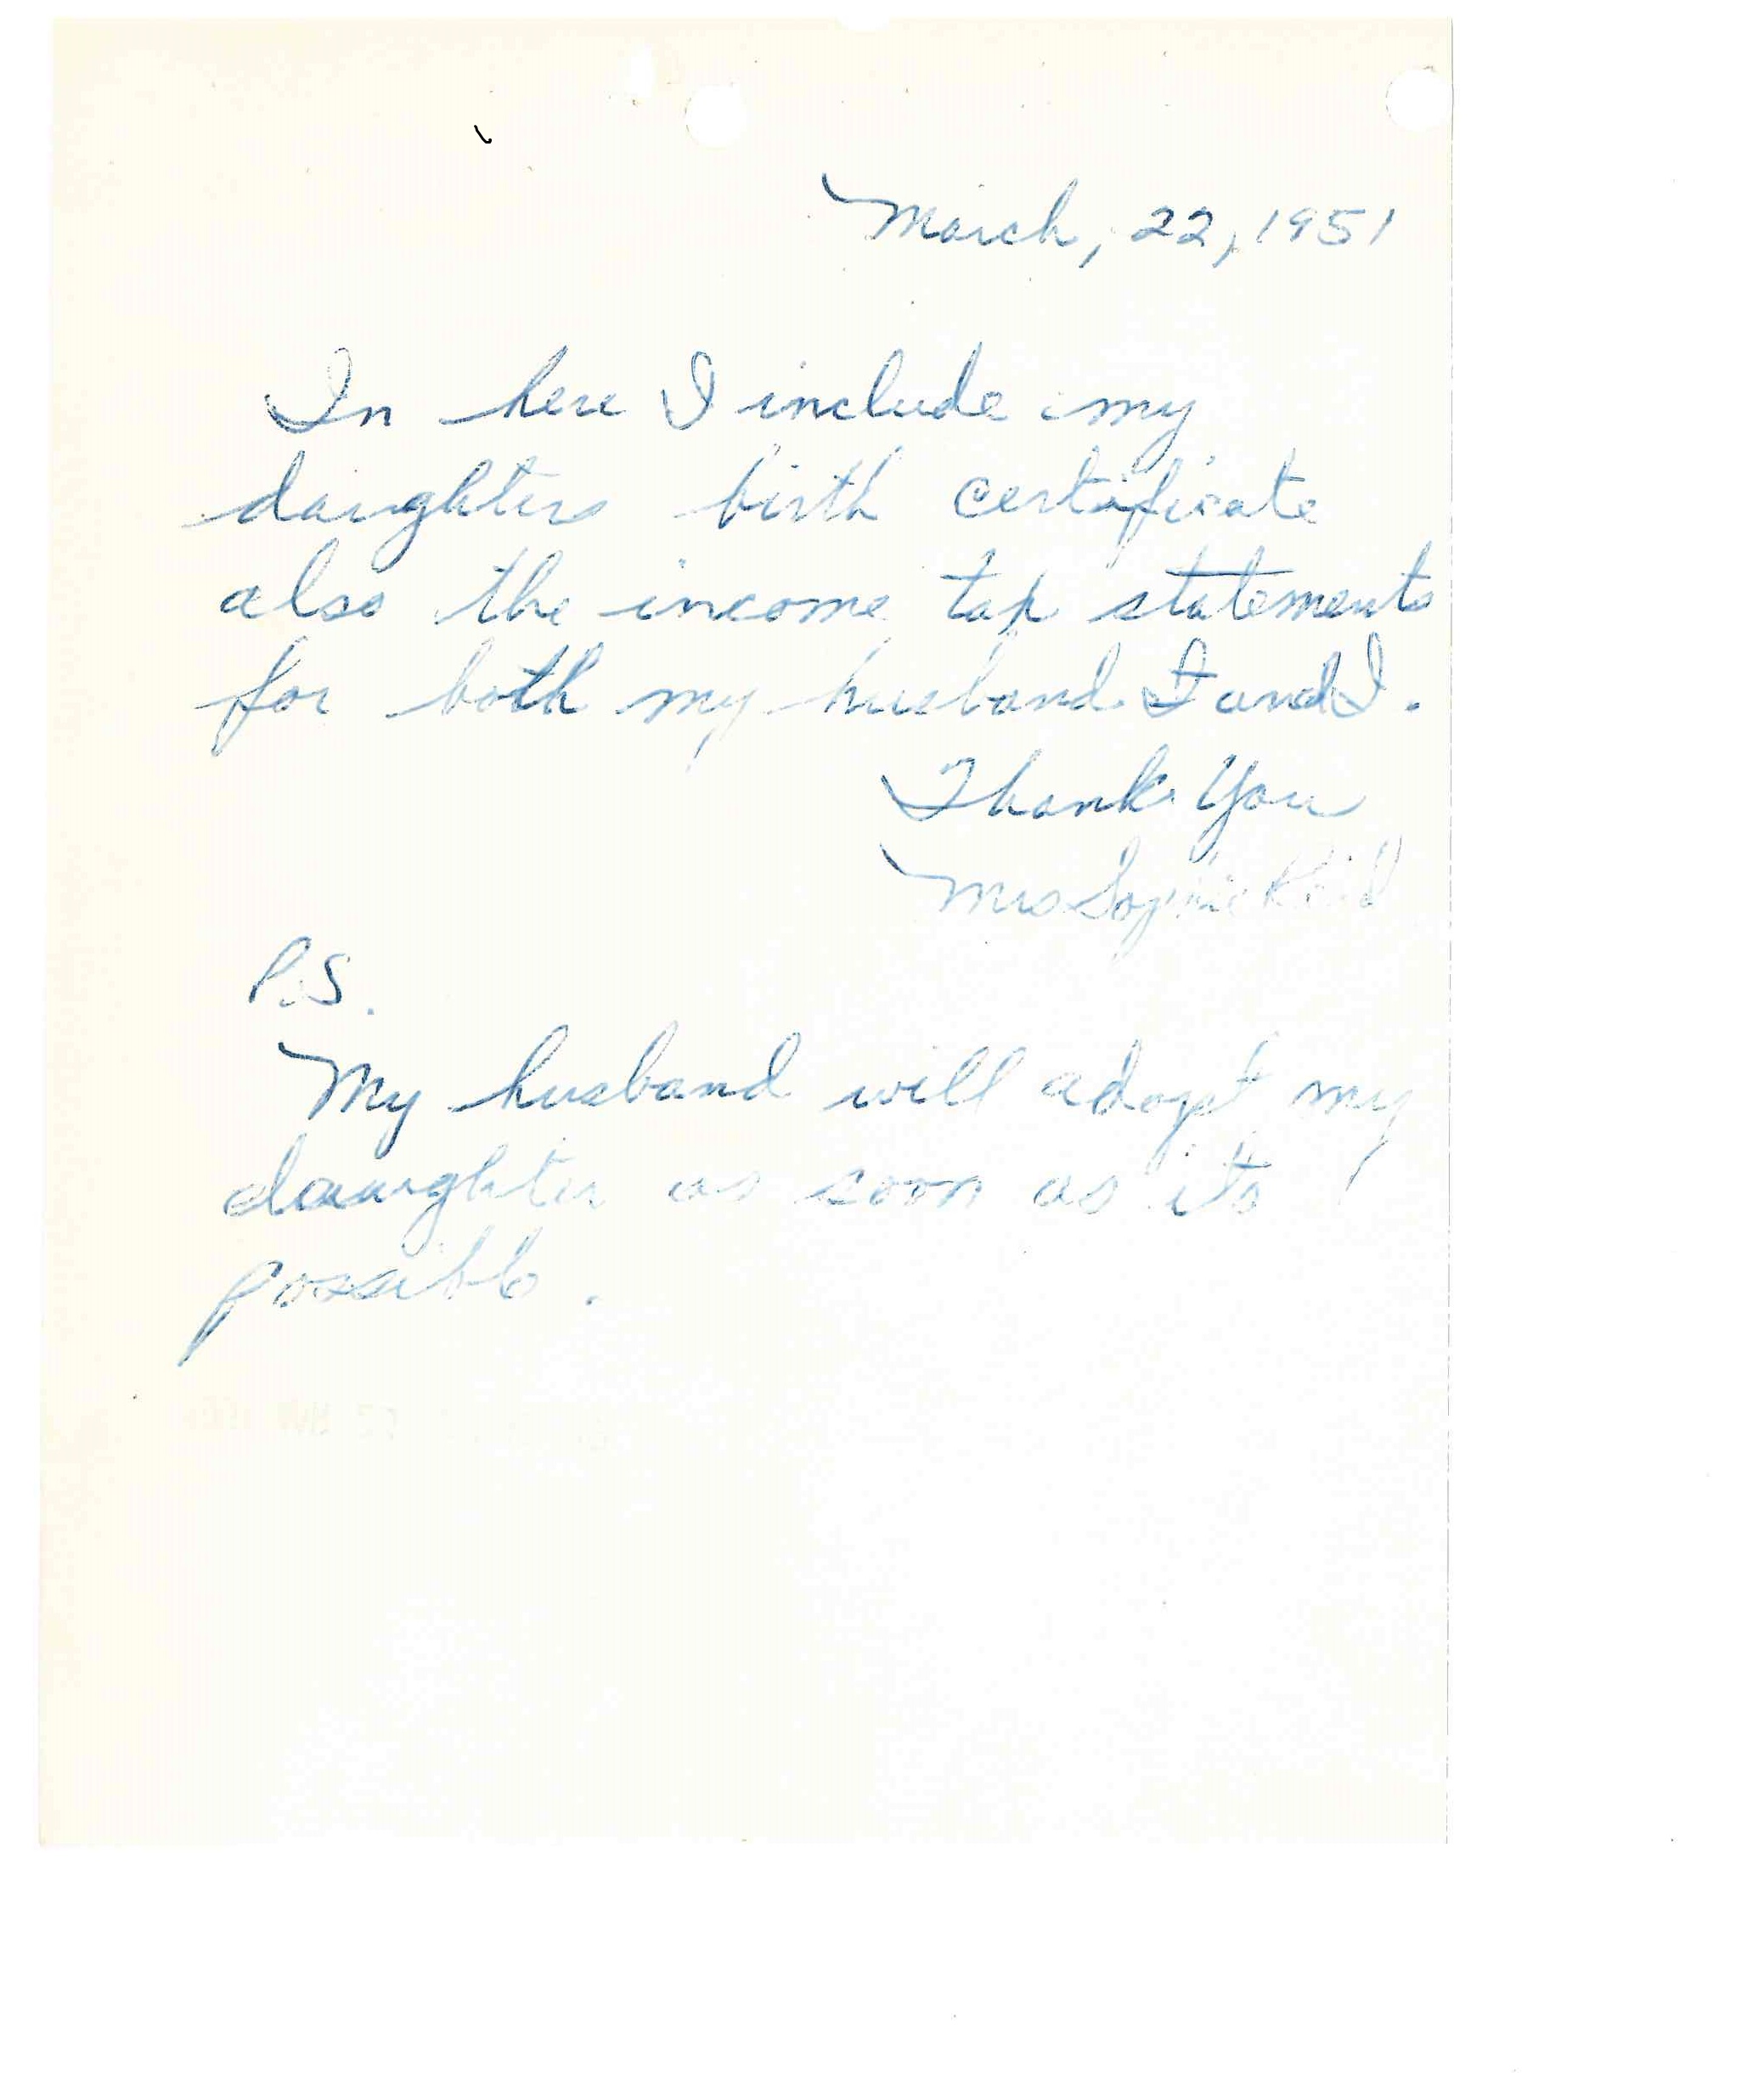 March, 22, 1951
In here I include my
daughters birth certificate
also the income tax statements
for both my husband I and I.
Thank You
Mrs Sophie Reid
P.S.
My husband will adopt my
dauughter as soon as its
possible.